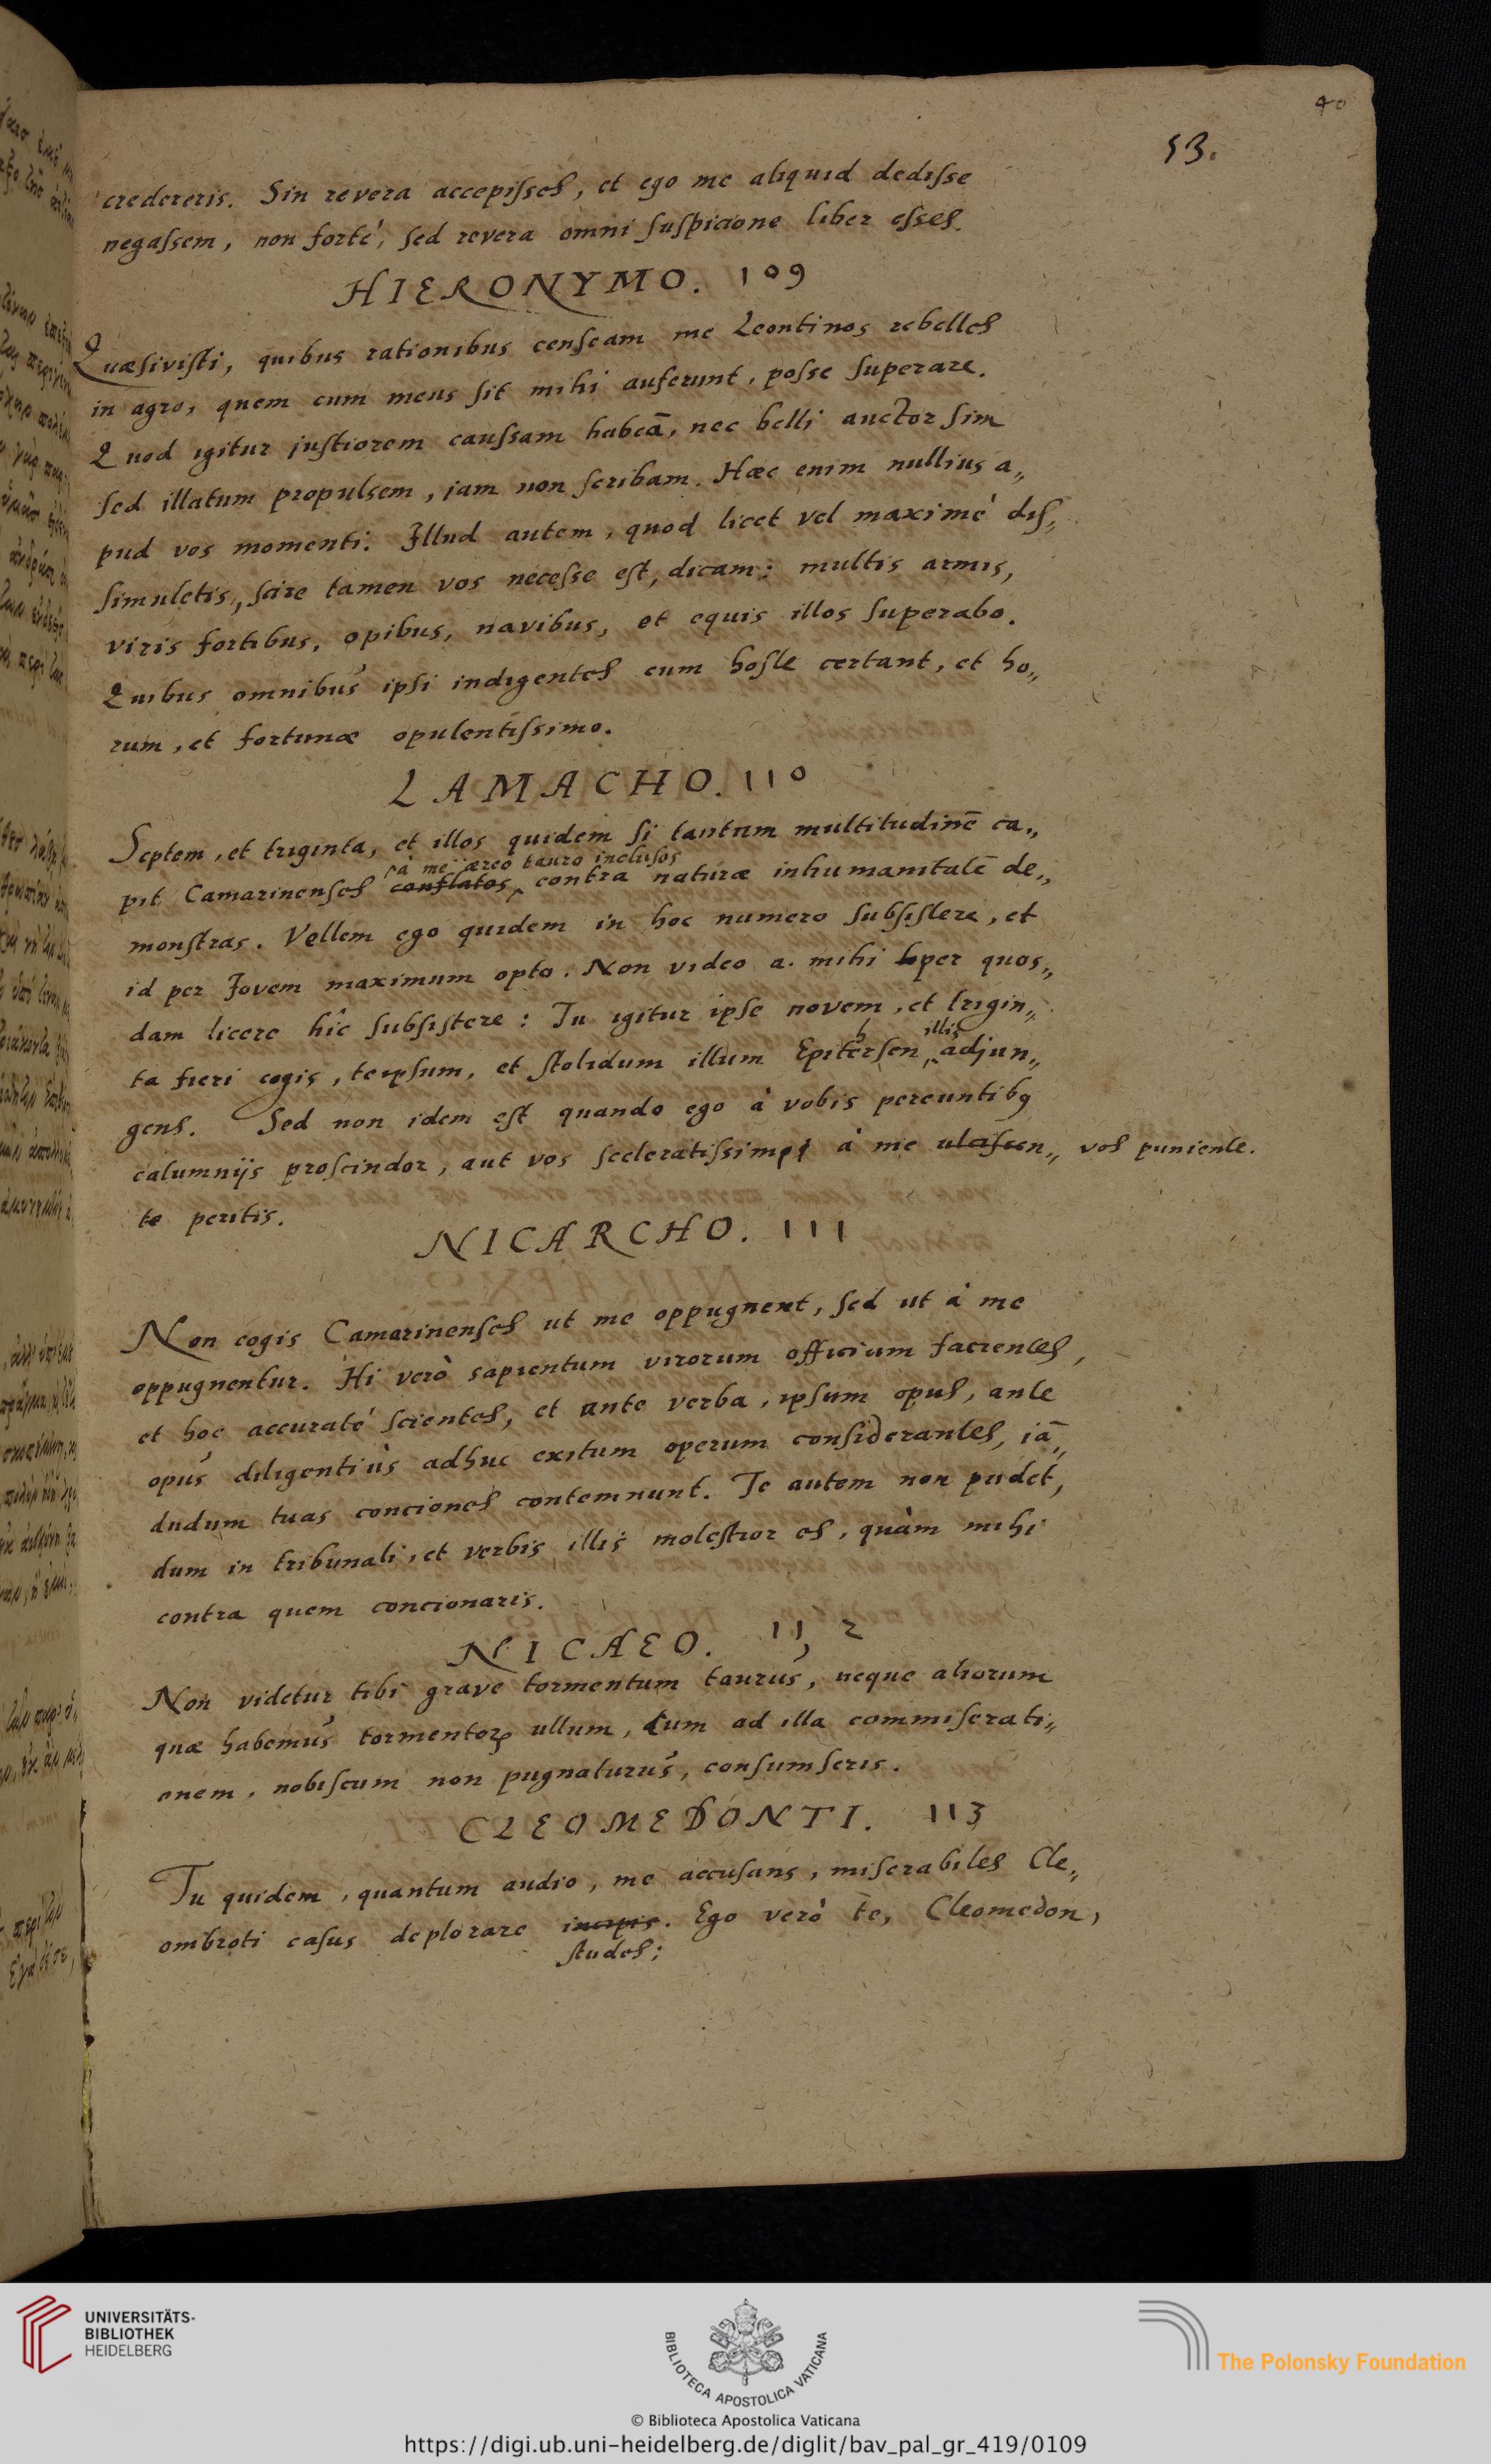 40
53.
credereris. Sin revera accepisses, et ego me aliquid dedisse
negassem, non forté, sed revera omni suspicione liber esses.
HIERONYMO. 109
Quæsivisti, quibus rationibus censeam me Leontinos rebelles
in agro, quem cum meus sit mihi auferunt, posse superare.
Quod igitur justiorem caussam habeā, nec belli auctor sim
sed illatum propulsem, jam non scribam. Hæc enim nullius a„
pud vos momenti. Illud autem, quod licet vel maximé dis„
simuletis, scire tamen vos necesse est, dicam: multis armis,
viris fortibus, opibus, navibus, et equis illos superabo.
Quibus omnibus ipsi indigentes cum hoste certant, et ho„
rum, et fortunæ opulentissimo.
LAMACHO. 110
Septem, et triginta, et illos quidem si tantum multitudinē ca„
à me æreo tauro inclusos
pit Camarinenses conflatos, contra naturæ inhumanitatē de„
monstras. Vellem ego quidem in hoc numero subsistere, et
id per Jovem maximum opto. Non video a. mihi per quos„
dam licere hîc subsistere: Tu igitur ipse novem, et trigin„
h illis
ta fieri cogis, teipsum, et stolidum illum Epitersen adjun„
gens. Sed non idem est quando ego à vobis pereuntibq
calumnijs proscindor, aut vos sceleratissimi à me ulciscen„ vos puniente.
te peritis.
NICARCHO. 111
Non cogis Camarinenses ut me oppugnent, sed ut à me
oppugnentur. Hi verò sapientum virorum officium facientes,
et hoc accuraté scientes, et ante verba, ipsum opus, ante
opus diligentiùs adhuc exitum operum considerantes, jā„
dudum tuas conciones contemnunt. Te autem non pudet,
dum in tribunali, et verbis illis molestior es, quàm mihi
contra quem concionaris.
NICAEO. 112
Non videtur tibi grave tormentum taurus, neque aliorum
quæ habemus tormentoꝝ ullum, cum ad illa commiserati„
onem, nobiscum non pugnaturus, consumseris.
CLEOMEDONTI. 113
Tu quidem, quantum audio, me accusans, miserabiles Cle„
ombroti casus deplorare incipis. Ego verò te, Cleomedon,
studes;
UNIVERSITÄTS-
BIBLIOTHEK
HEIDELBERG
BIBLIOTECA APOSTOLICA VATICANA
The Polonsky Foundation
© Biblioteca Apostolica Vaticana
https://digi.ub.uni-heidelberg.de/diglit/bav_pal_gr_419/0109